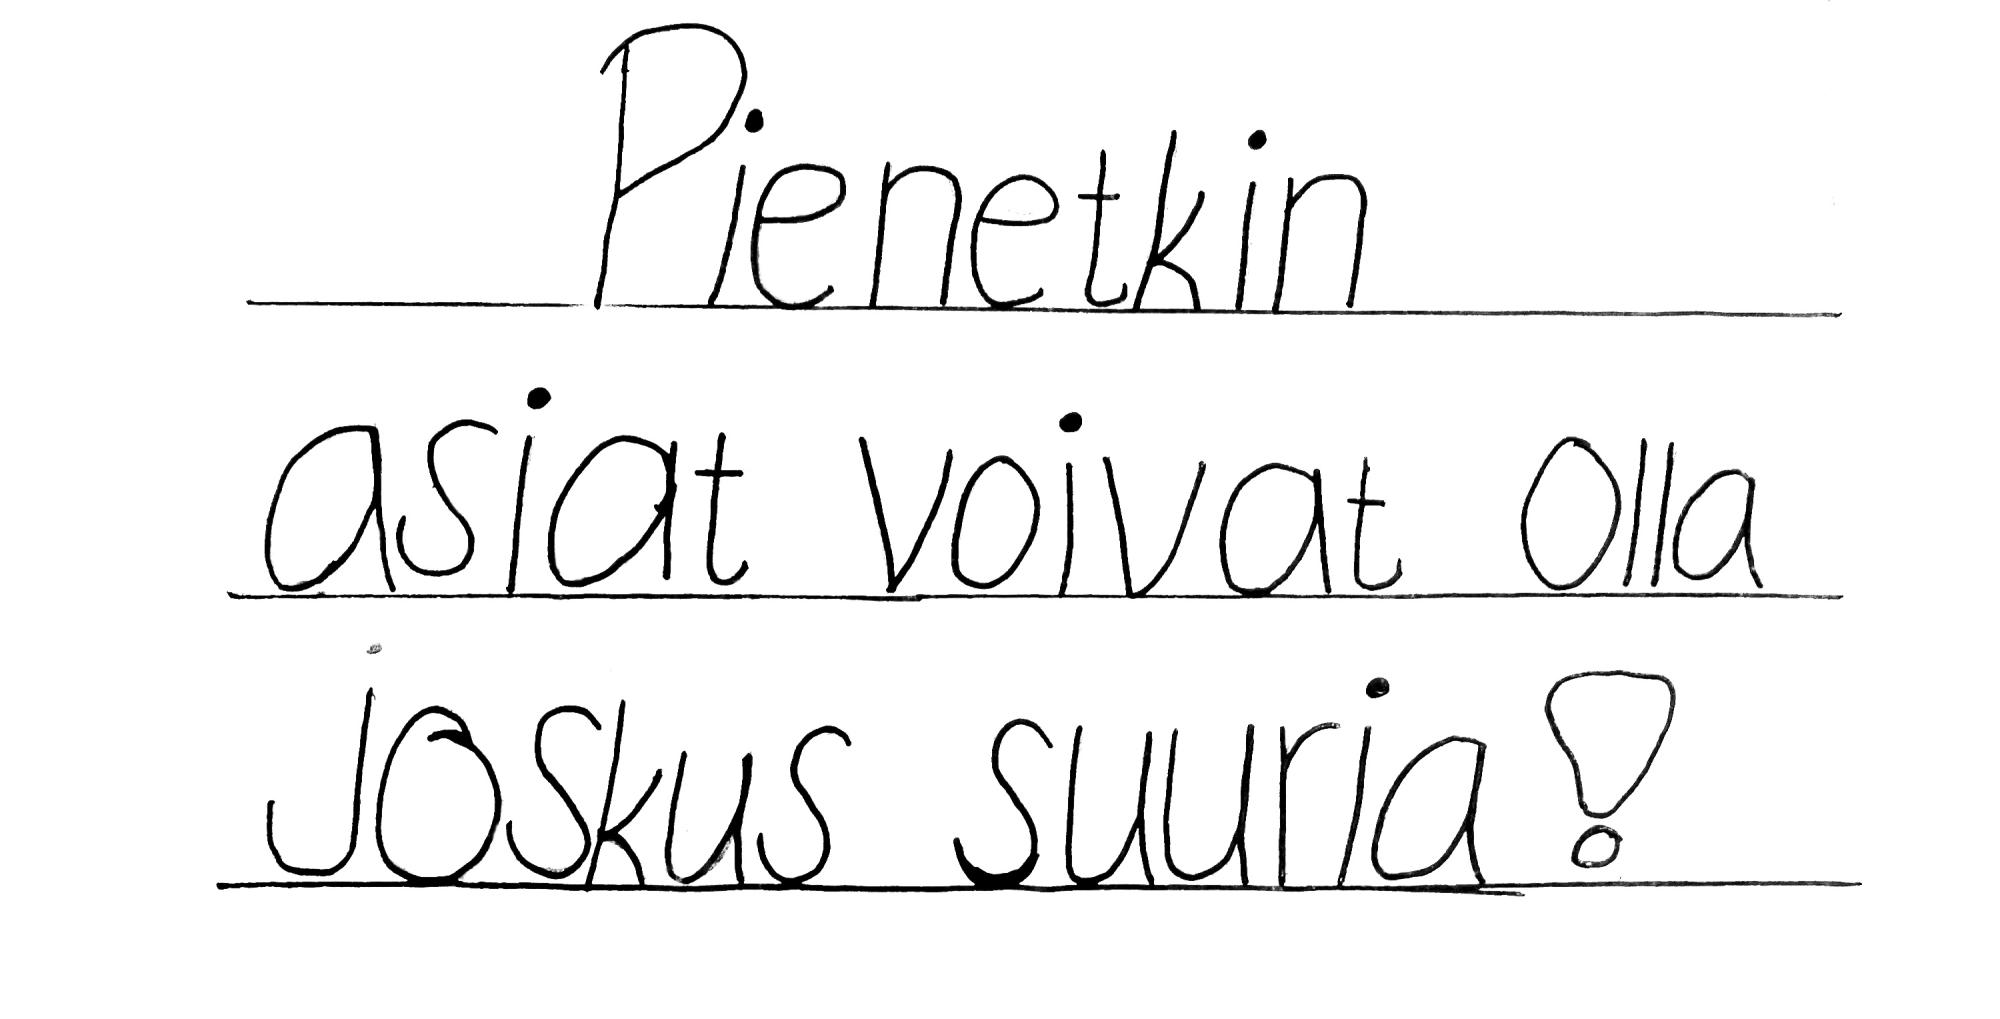 Pienetkin
asiat voivat olla
joskus suuria!